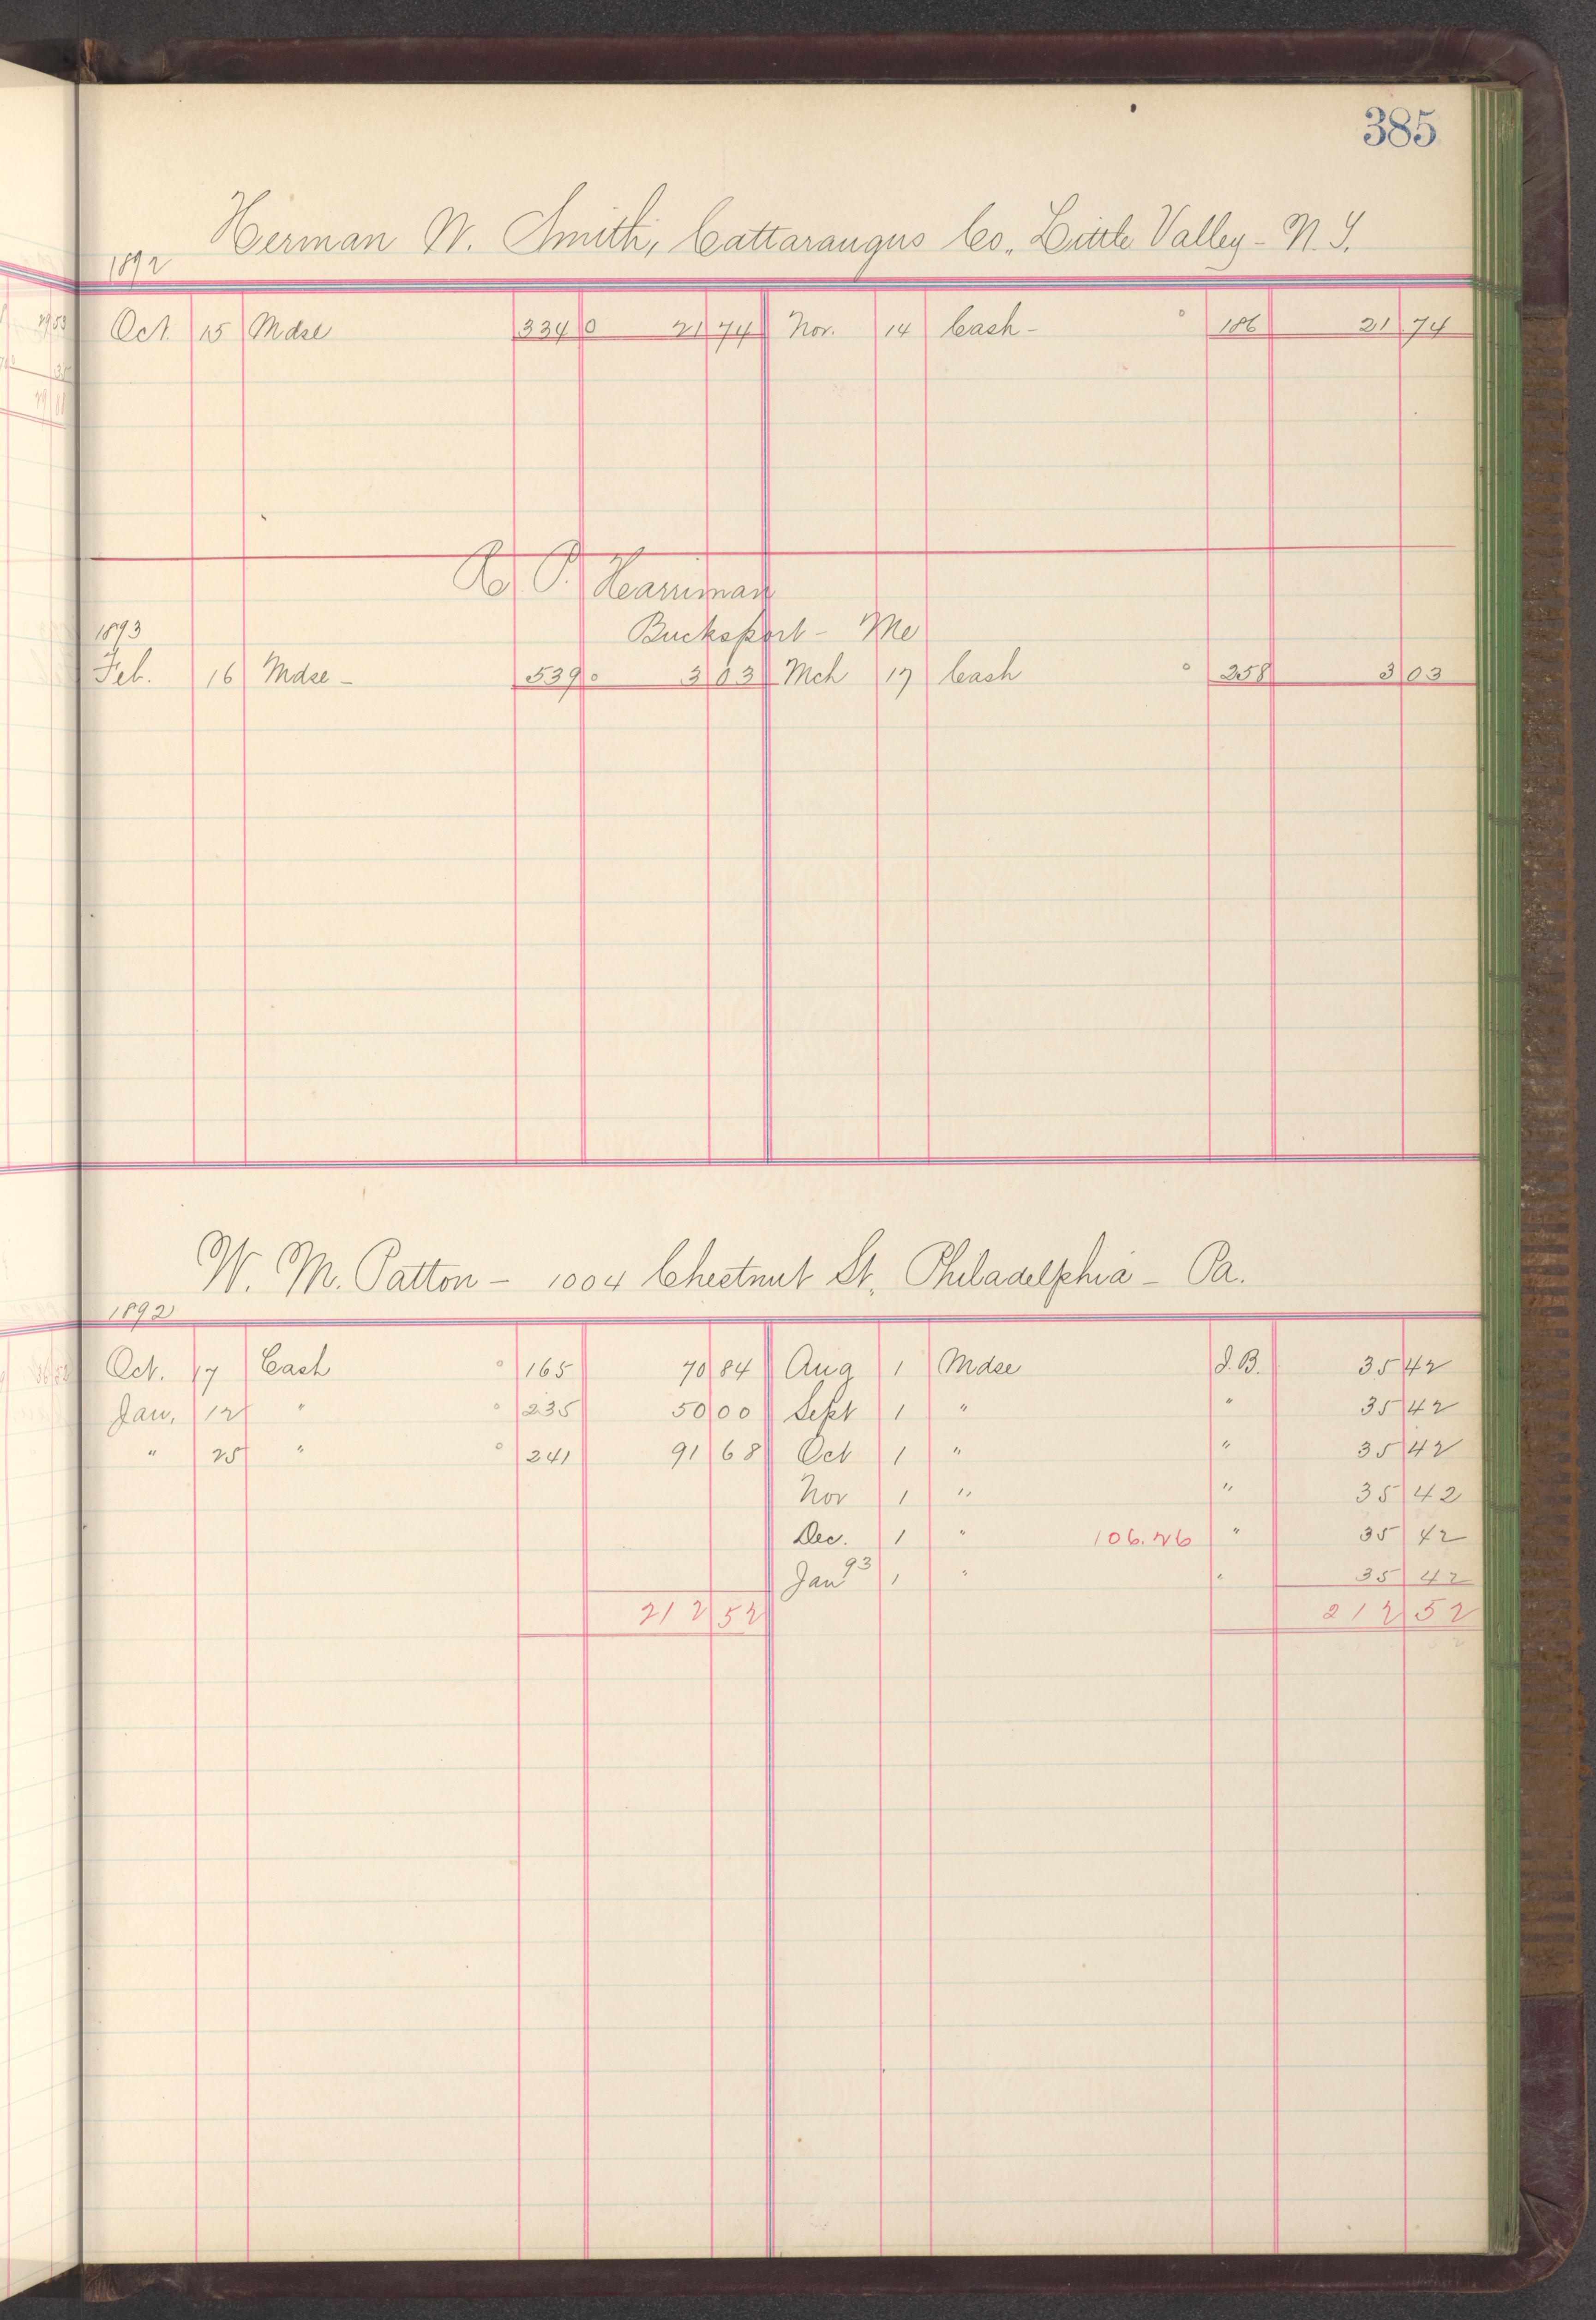 385
Herman W. Smith, Cattaraugus Co., Little Valley - N. Y.
1892
Oct. 15 Mdse 334 0 21 74 Nov. 14 Cash - 0 186 21 74
R. P. Harriman
1893 Bucksport - Me
Feb. 16 Mdse - 539 0 3 03 Mch 17 Cash 0 258 3 03
W. M. Patton - 1004 Chestnut St., Philadelphia - Pa.
1892
Oct. 17 Cash 0 165 70 84 Aug 1 Mdse J. B. 35 42
Jan, 12 " 0 235 50 00 Sept 1 " " 35 42
" 25 " 0 241 91 68 Oct 1 " " 35 42
Nov 1 " " 35 42
Dec. 1 " 106.26 " 35 42
Jan 93 1 " " 35 42
212 52 212 52